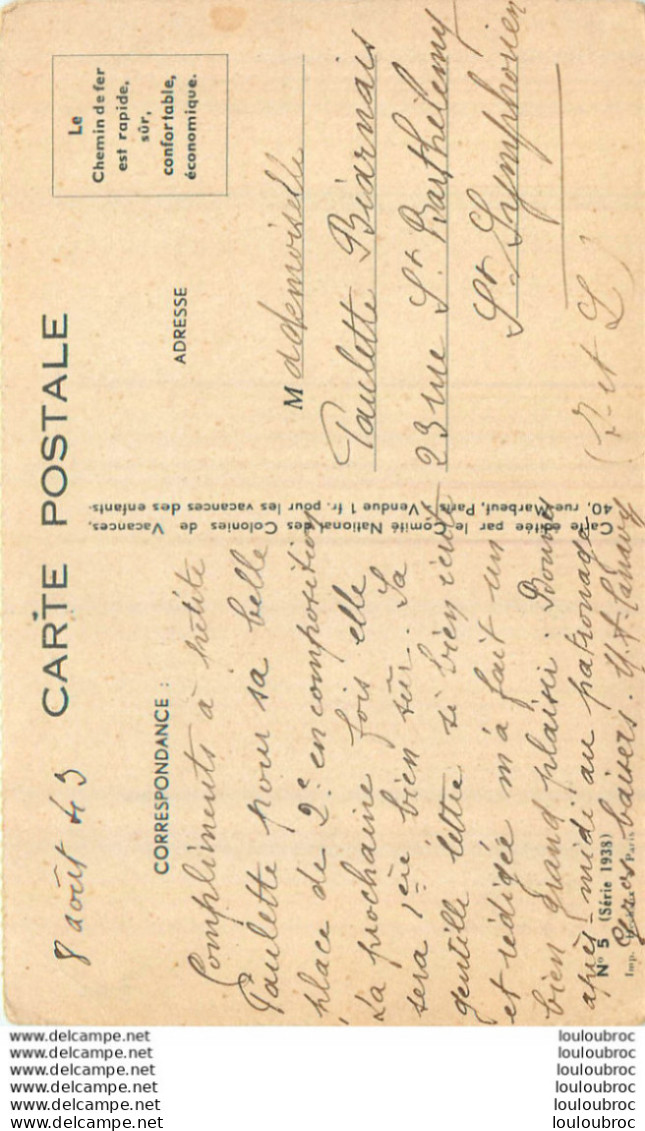 8 août 43
CARTE POSTALE
Le
Chemin de fer
est rapide,
sûr,
confortable,
économique.
CORRESPONDANCE :
Compliments à petite
Paulette pour sa belle
place de 2e en composition
La prochaine fois elle
sera 1ère bien sûr. Sa
gentille lettre si bien
et rédigée m'a fait un
bien grand plaisir. Bonne
après-midi au patronage
Gros baisers.
ADRESSE
Mademoiselle
Paulette Béarnais
23 rue St Barthélemy
St Symphorien
(I. et L)
Carte éditée par le Comité National des Colonies de Vacances,
40, rue Marbeuf, Paris. Vendue 1 fr. pour les vacances des enfants.
N° 5 (Série 1938)
Imp. Paris
www.delcampe.net
www.delcampe.net
www.delcampe.net
www.delcampe.net
www.delcampe.net
louloubroc
louloubroc
louloubroc
louloubroc
louloubroc
louloubroc